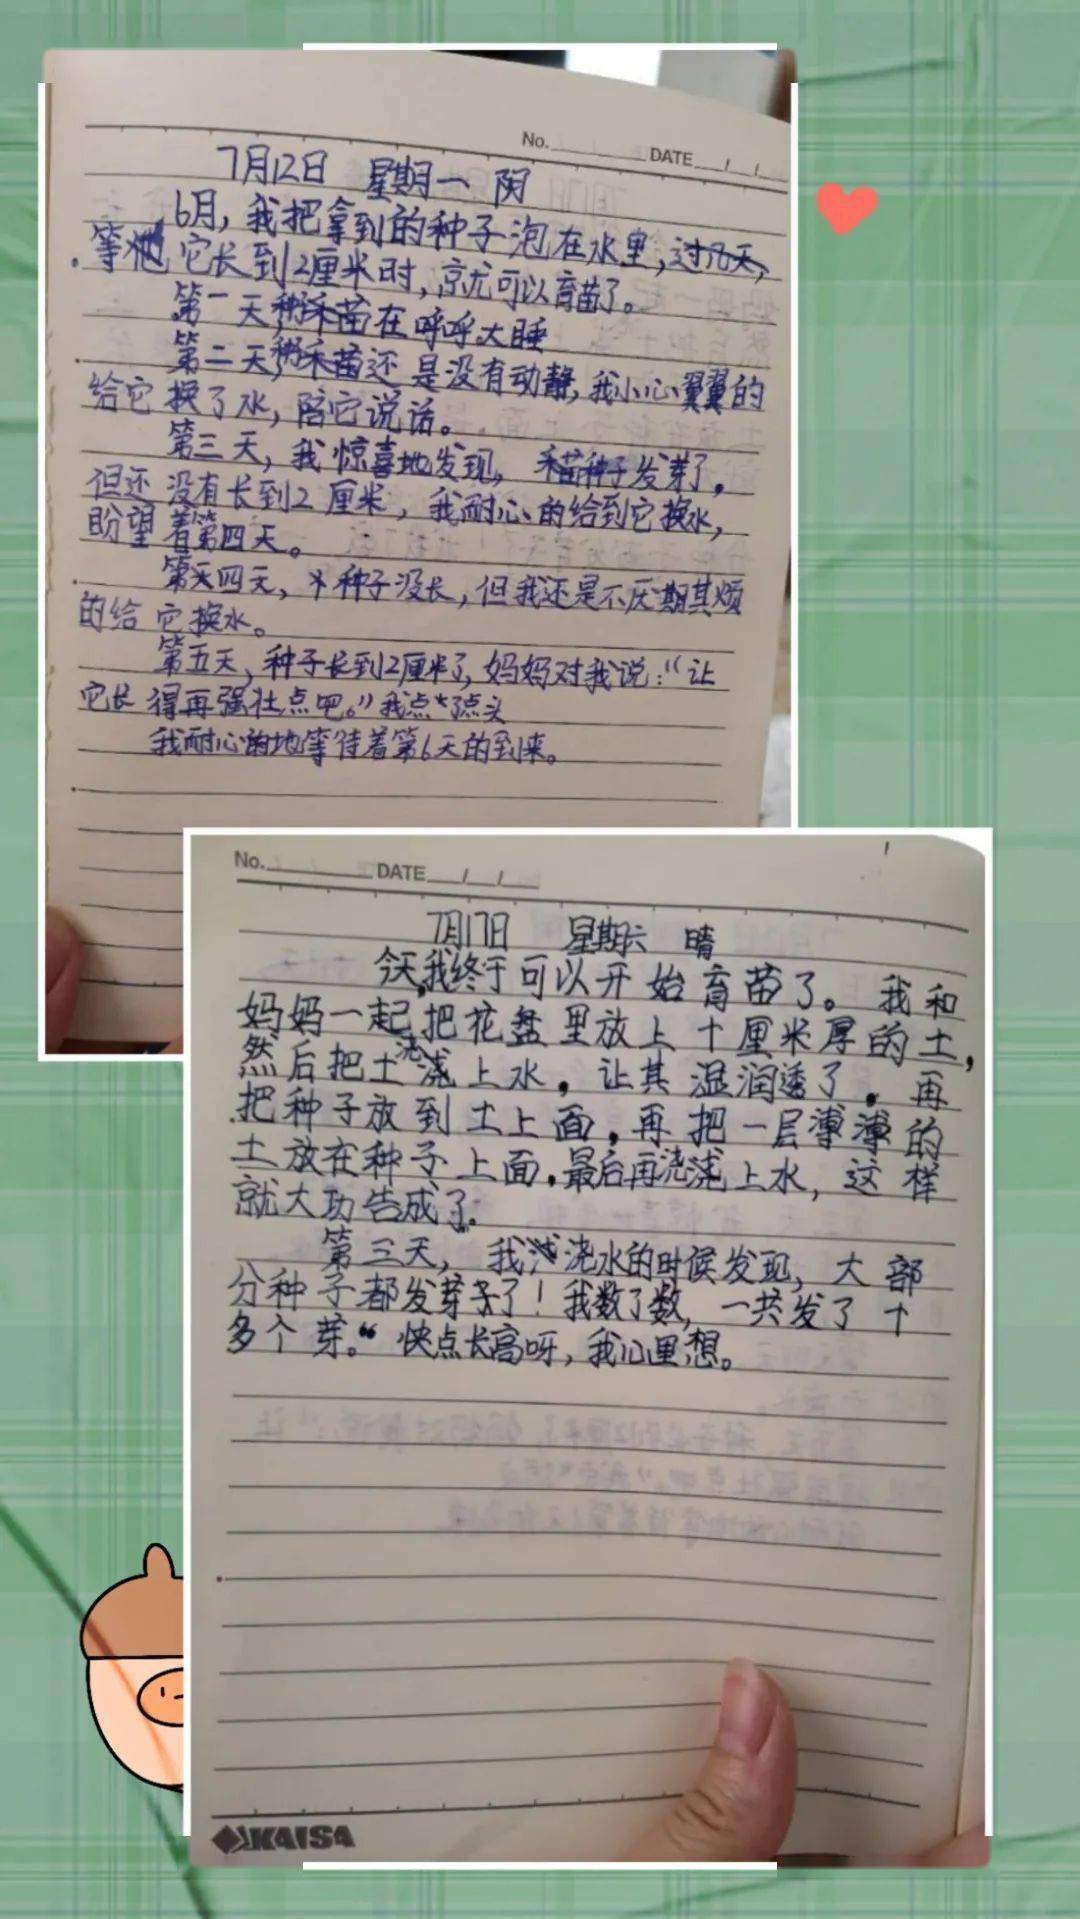 No. DATE / /
7月12日 星期一 阴
6月,我把拿到的种子泡在水里,过几天,
等它长到2厘米时,就可以育苗了。
第一天,禾苗在呼呼大睡
第二天,禾苗还是没有动静,我小心翼翼的
给它换了水,陪它说话。
第三天,我惊喜地发现,种子发芽了,
但还没有长到2厘米,我耐心的给到它换水,
盼望着第四天。
第四天,种子没长,但我还是不厌期其烦
的给它换水。
第五天,种子长到2厘米了,妈妈对我说:“让
它长得再强壮点吧。”我点了点头
我耐心的地等待着第6天的到来。
No. DATE / /
7月17日 星期六 晴
今天,我终于可以开始育苗了。我和
妈妈一起把花盘里放上十厘米厚的土,
然后把土浇上水,让其湿润透了,再
把种子放到土上面,再把一层薄薄的
土放在种子上面,最后再浇上水,这样
就大功告成了。
第三天,我浇水的时候发现,大部
分种子都发芽了!我数了数,一共发了十
多个芽。“快点长高呀,我心里想。
KAISA